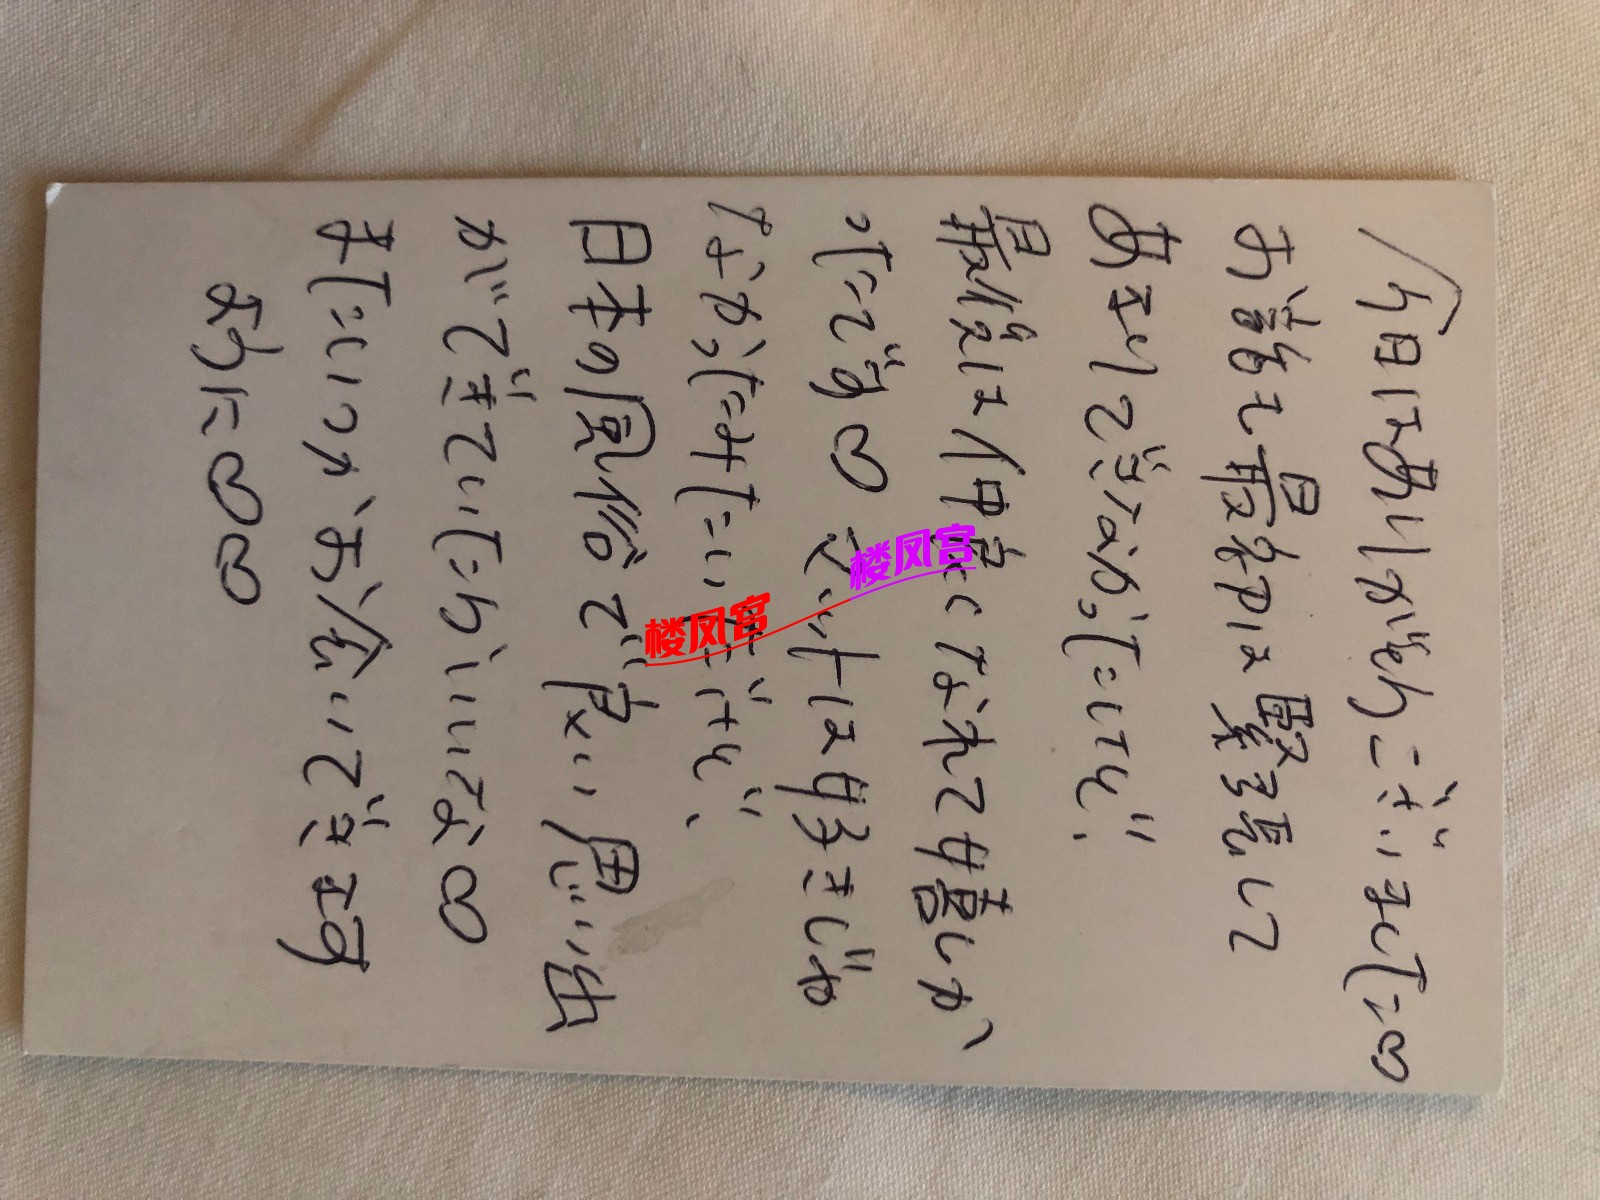 今日はありがとうございました♡
お話も最初は緊張して
あまりできなかったけど、
最後は仲良くなれて嬉しか
ったです♡ エッチは好きじゃ
なかったみたいだけど、
日本の風俗で良い思い出
ができていたらいいな♡
またいつかお会いできます
ように♡♡
楼凤宫
楼凤宫